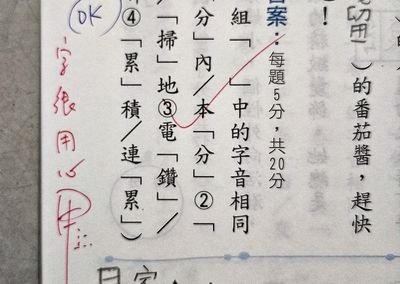 用 )的番茄醬，趕快
！
答案：每題5分，共20分
組「　」中的字音相同
分」內／本「分」②「
「掃」地③電「鑽」／
④「累」積／連「累」）
OK
字很用心